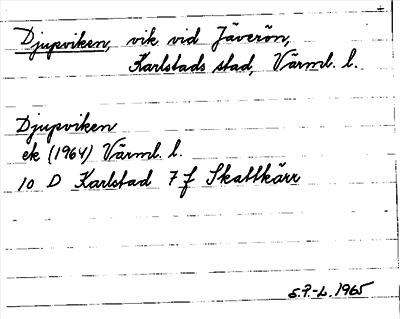 Djupviken, vik vid Jäverön,
Karlstads stad, Värml. l.
Djupviken
ek (1964) Värml. l.
10 D Karlstad 7 f Skattkärr
S.P.-L. 1965